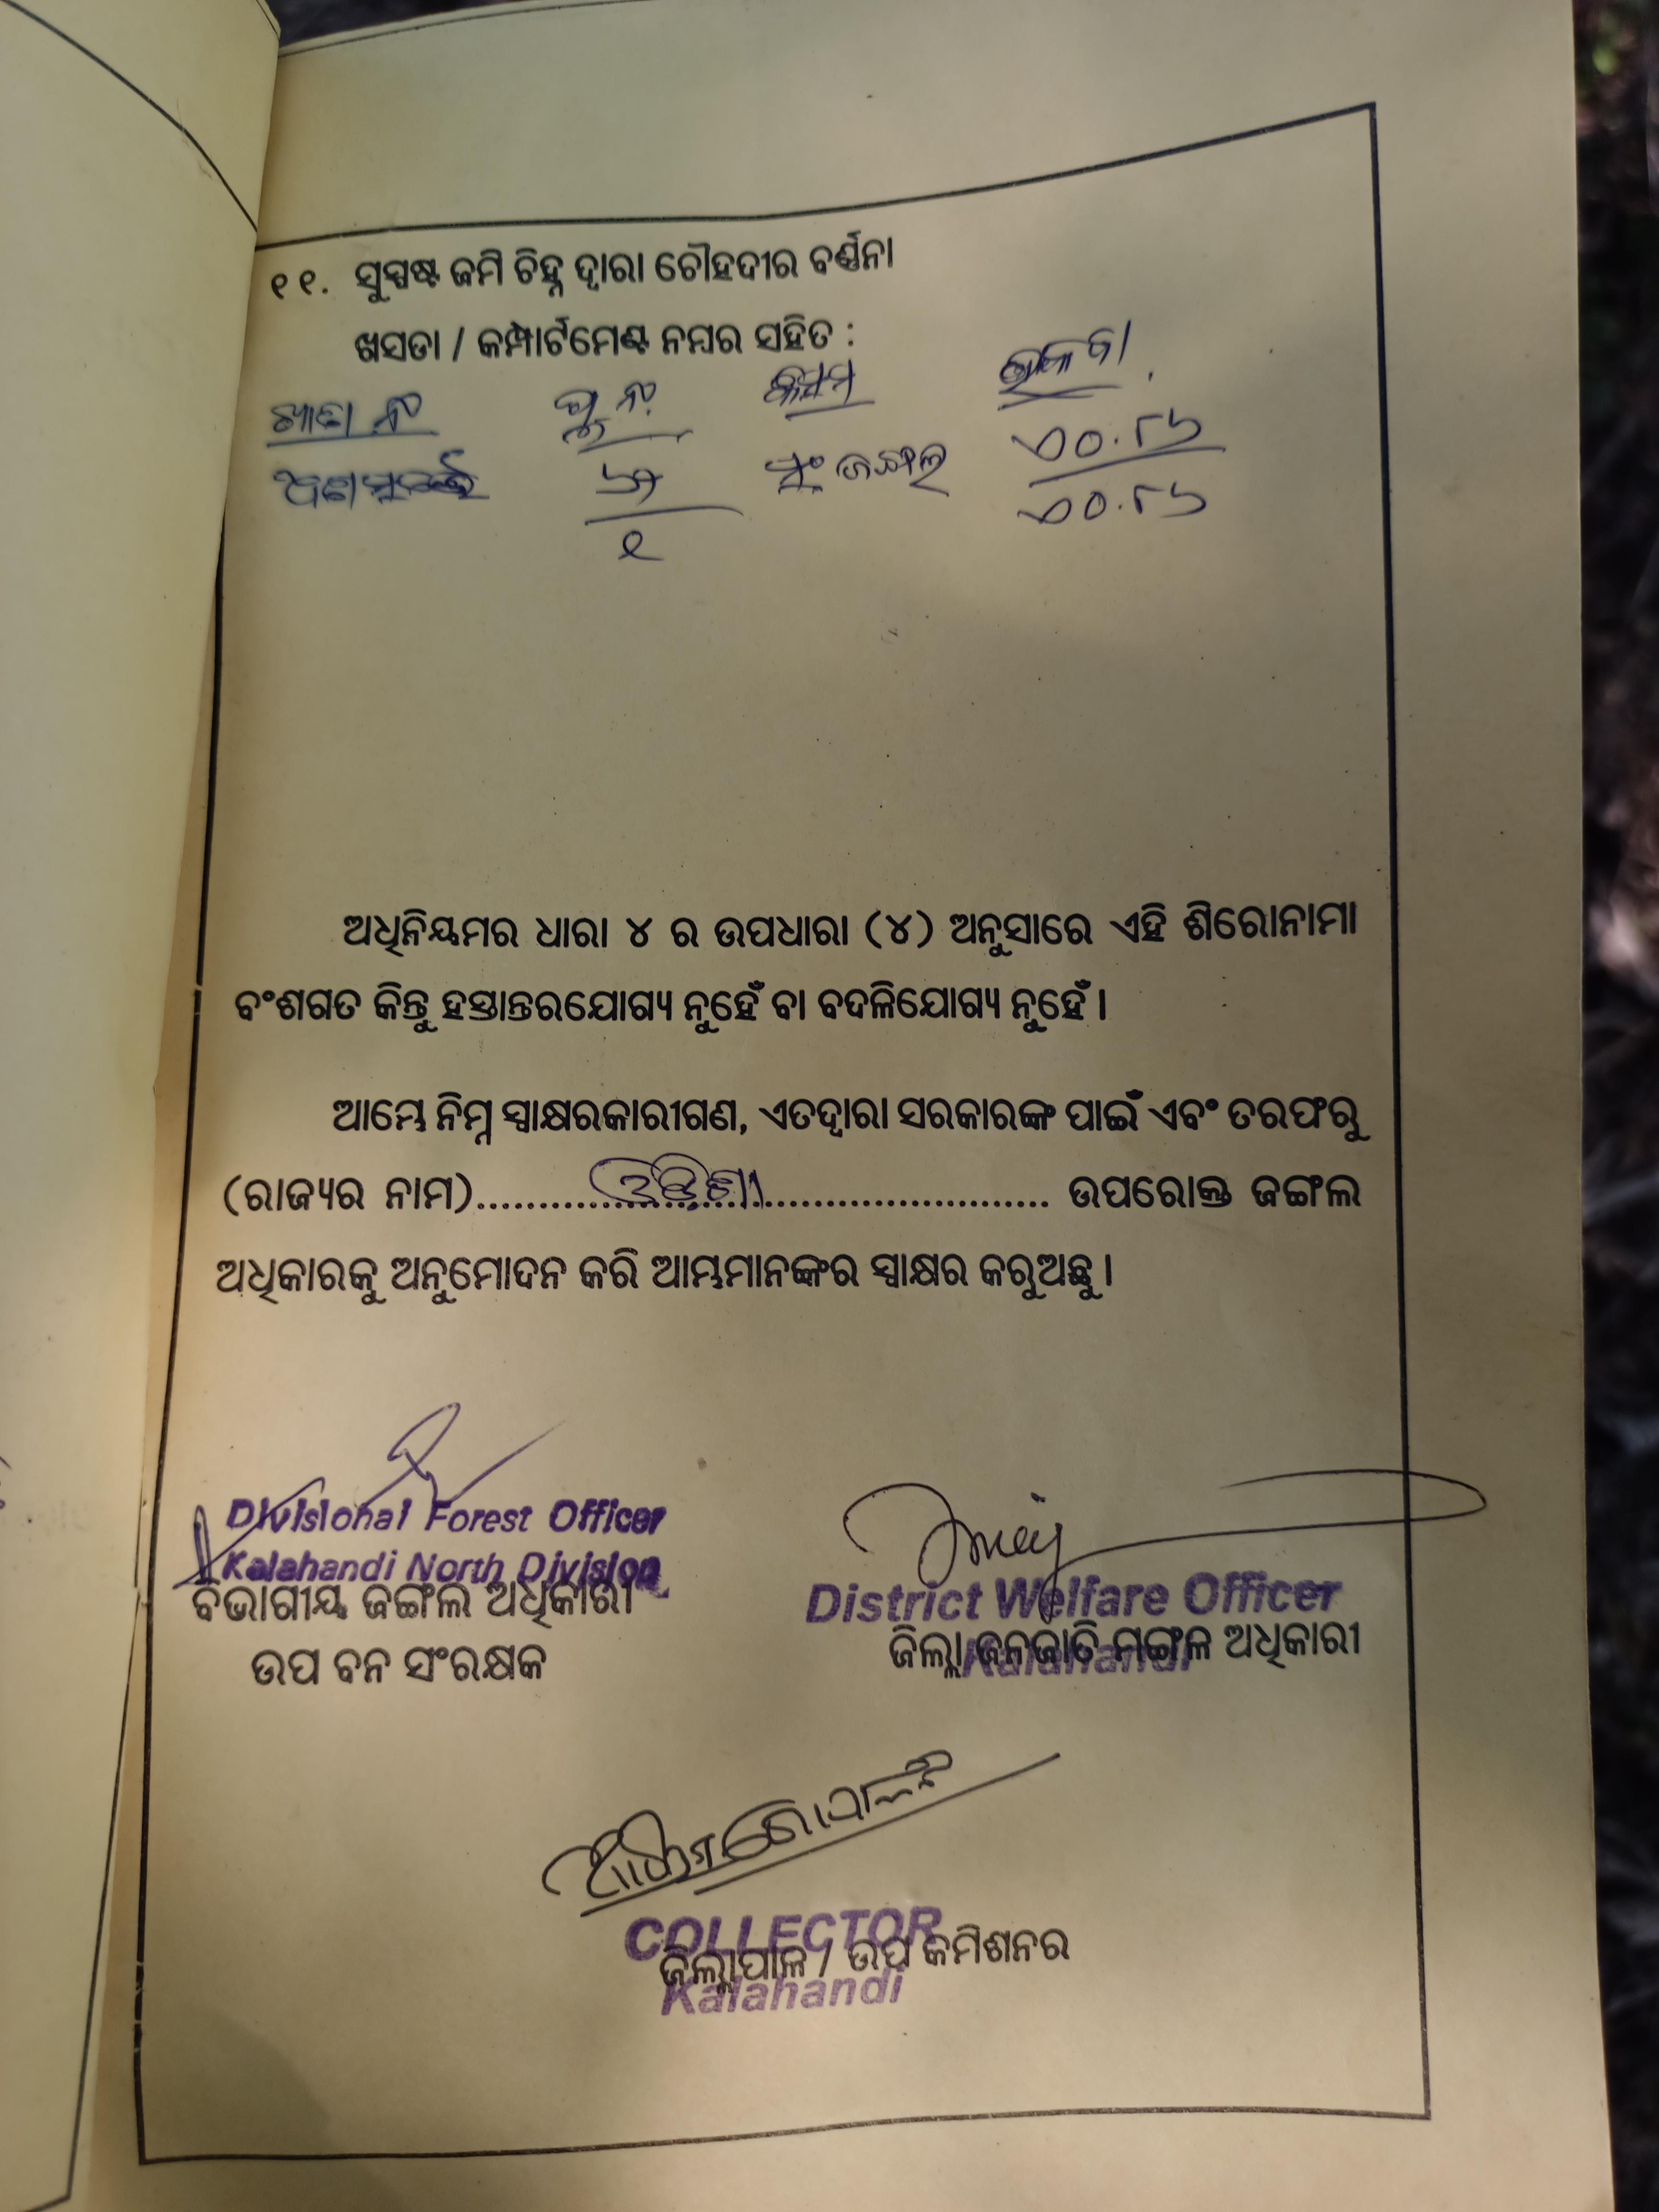 ୧୧. ସୁସ୍ପଷ୍ଟ ଜମି ଚିହ୍ନ ଦ୍ୱାରା ଚୌହଦୀର ବର୍ଣ୍ଣନା
ଖସଡା / କମ୍ପାର୍ଟମେଣ୍ଟ ନମ୍ବର ସହିତ :
ଖାତା ନଂ ପ୍ଲଟ ନଂ କିସମ ରକବା
ଜଙ୍ଗଲ ୦.୮୬
୧ ୦.୮୬
ଅଧିନିୟମର ଧାରା ୪ ର ଉପଧାରା (୪) ଅନୁସାରେ ଏହି ଶିରୋନାମା
ବଂଶଗତ କିନ୍ତୁ ହସ୍ତାନ୍ତରଯୋଗ୍ୟ ନୁହେଁ ବା ବଦଳିଯୋଗ୍ୟ ନୁହେଁ ।
ଆମ୍ଭେ ନିମ୍ନ ସ୍ୱାକ୍ଷରକାରୀଗଣ, ଏତଦ୍ୱାରା ସରକାରଙ୍କ ପାଇଁ ଏବଂ ତରଫରୁ
(ରାଜ୍ୟର ନାମ)...........ଓଡ଼ିଶା........................ ଉପରୋକ୍ତ ଜଙ୍ଗଲ
ଅଧିକାରକୁ ଅନୁମୋଦନ କରି ଆମ୍ଭମାନଙ୍କର ସ୍ୱାକ୍ଷର କରୁଅଛୁ ।
Divisional Forest Officer
Kalahandi North Division
ବିଭାଗୀୟ ଜଙ୍ଗଲ ଅଧିକାରୀ
ଉପ ବନ ସଂରକ୍ଷକ
District Welfare Officer
Kalahandi
ଜିଲ୍ଲା ଜନଜାତି ମଙ୍ଗଳ ଅଧିକାରୀ
COLLECTOR
ଜିଲ୍ଲାପାଳ / ଉପ କମିଶନର
Kalahandi